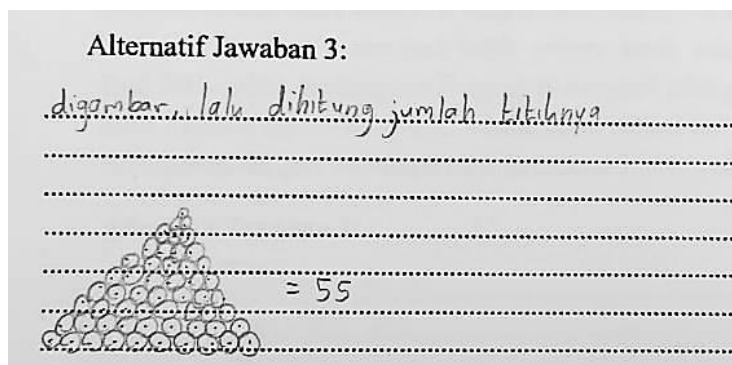 Alternatif Jawaban 3:
digambar, lalu dihitung jumlah titiknya
= 55